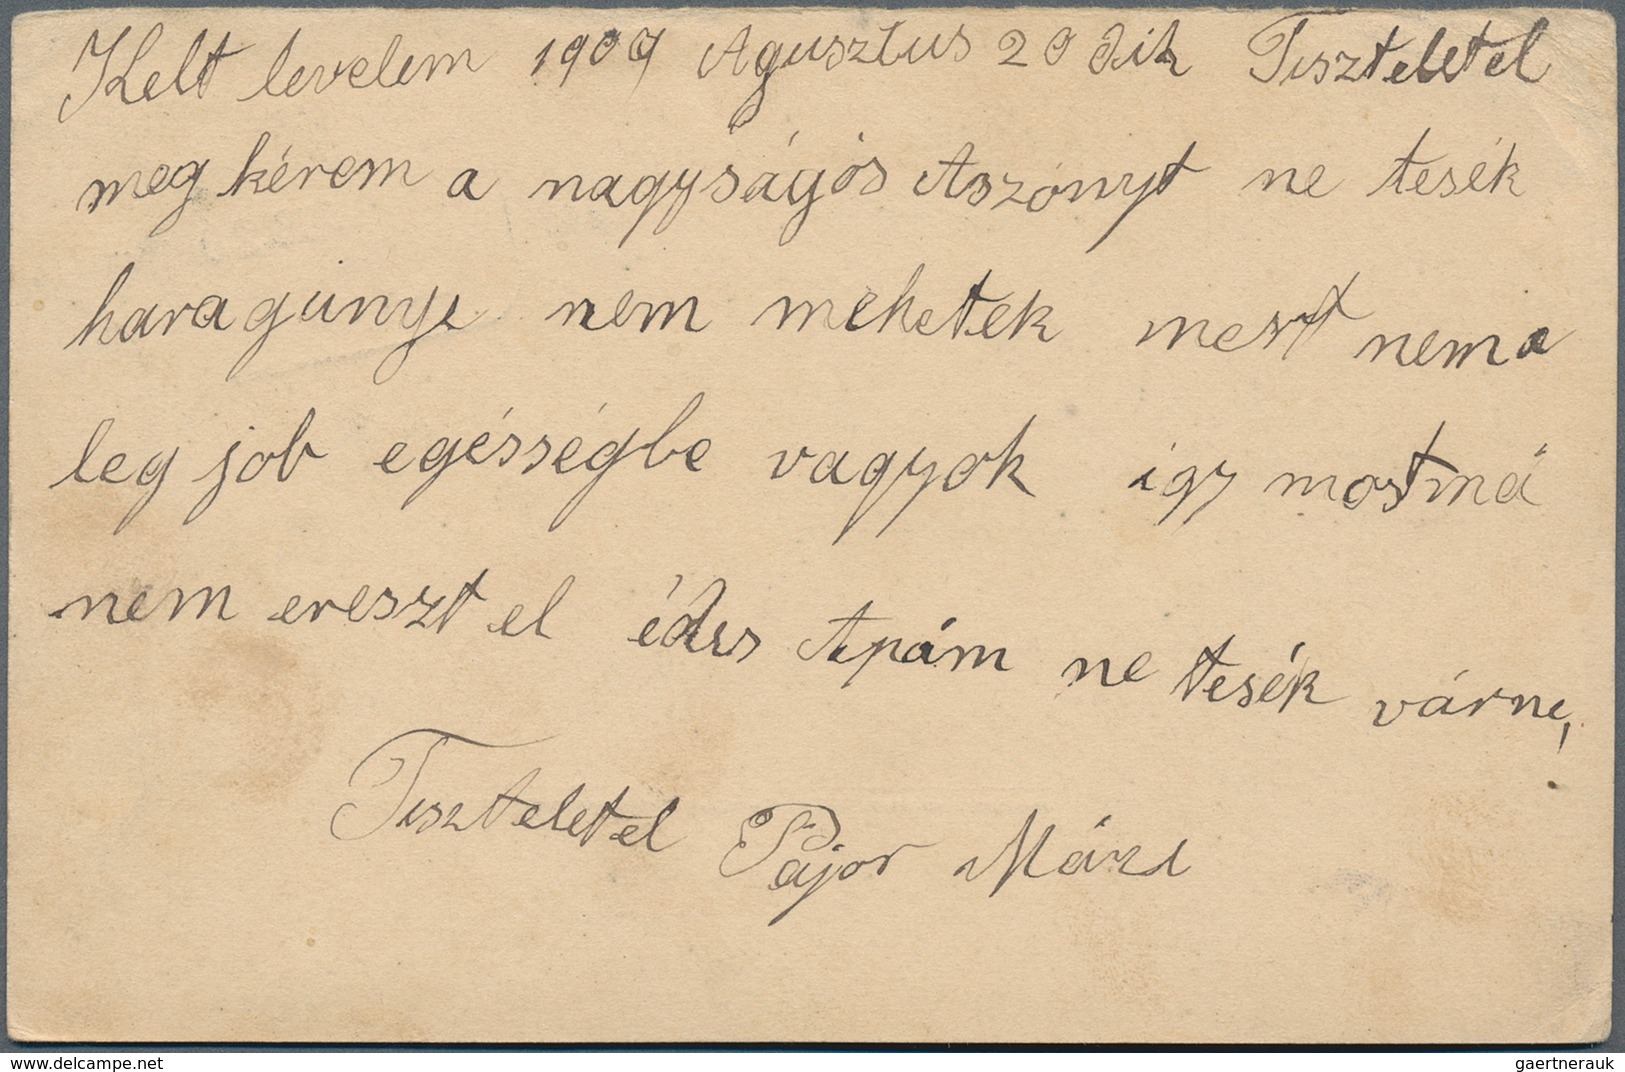 Kelt levelem 1909 Agusztus 20 dik Tiszteletel
meg kérem a nagyságós Aszónyt ne tesék
haragunyi nem mehetek mert nem a
leg job egésségbe vagyok igy mostmá
nem ereszt el édes Apám ne tesék várni,
Tiszteletel Pajor Mári
www.delcampe.net
gaertnerauk